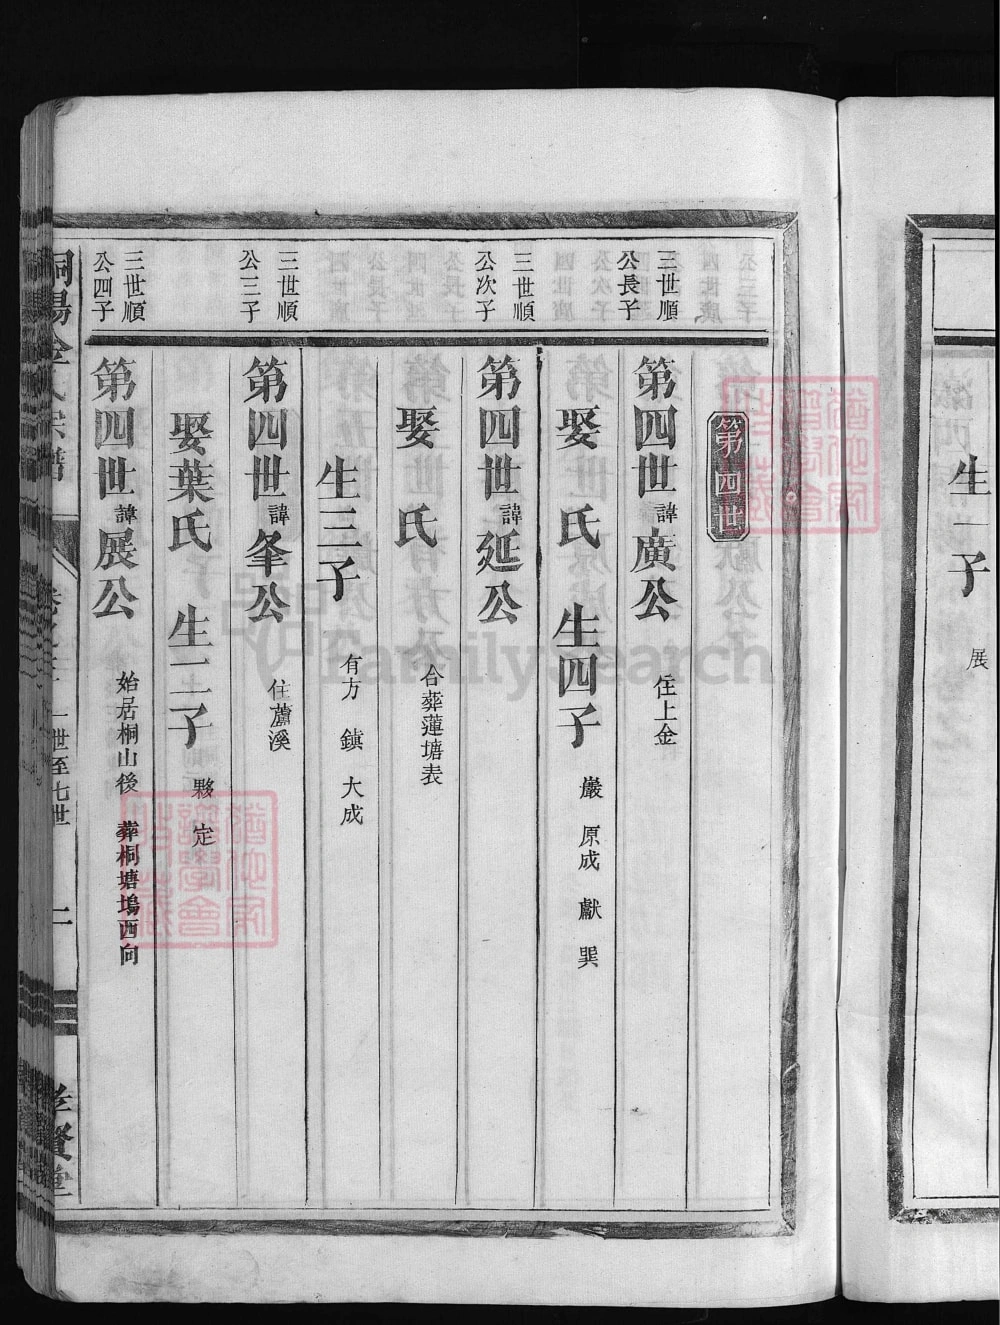 生一子 展
第四世
三世順公長子
第四世諱廣公 住上金
娶 氏 生四子 巖 原成 獻 巽
三世順公次子
第四世諱延公
娶 氏 合葬蓮塘表
生三子 有方 鎮 大成
三世順公三子
第四世諱夆公 住蘆溪
娶葉氏 生二子 夥 定
三世順公四子
第四世諱展公 始居桐山後 葬桐塘塢西向
一世至七世
FamilySearch